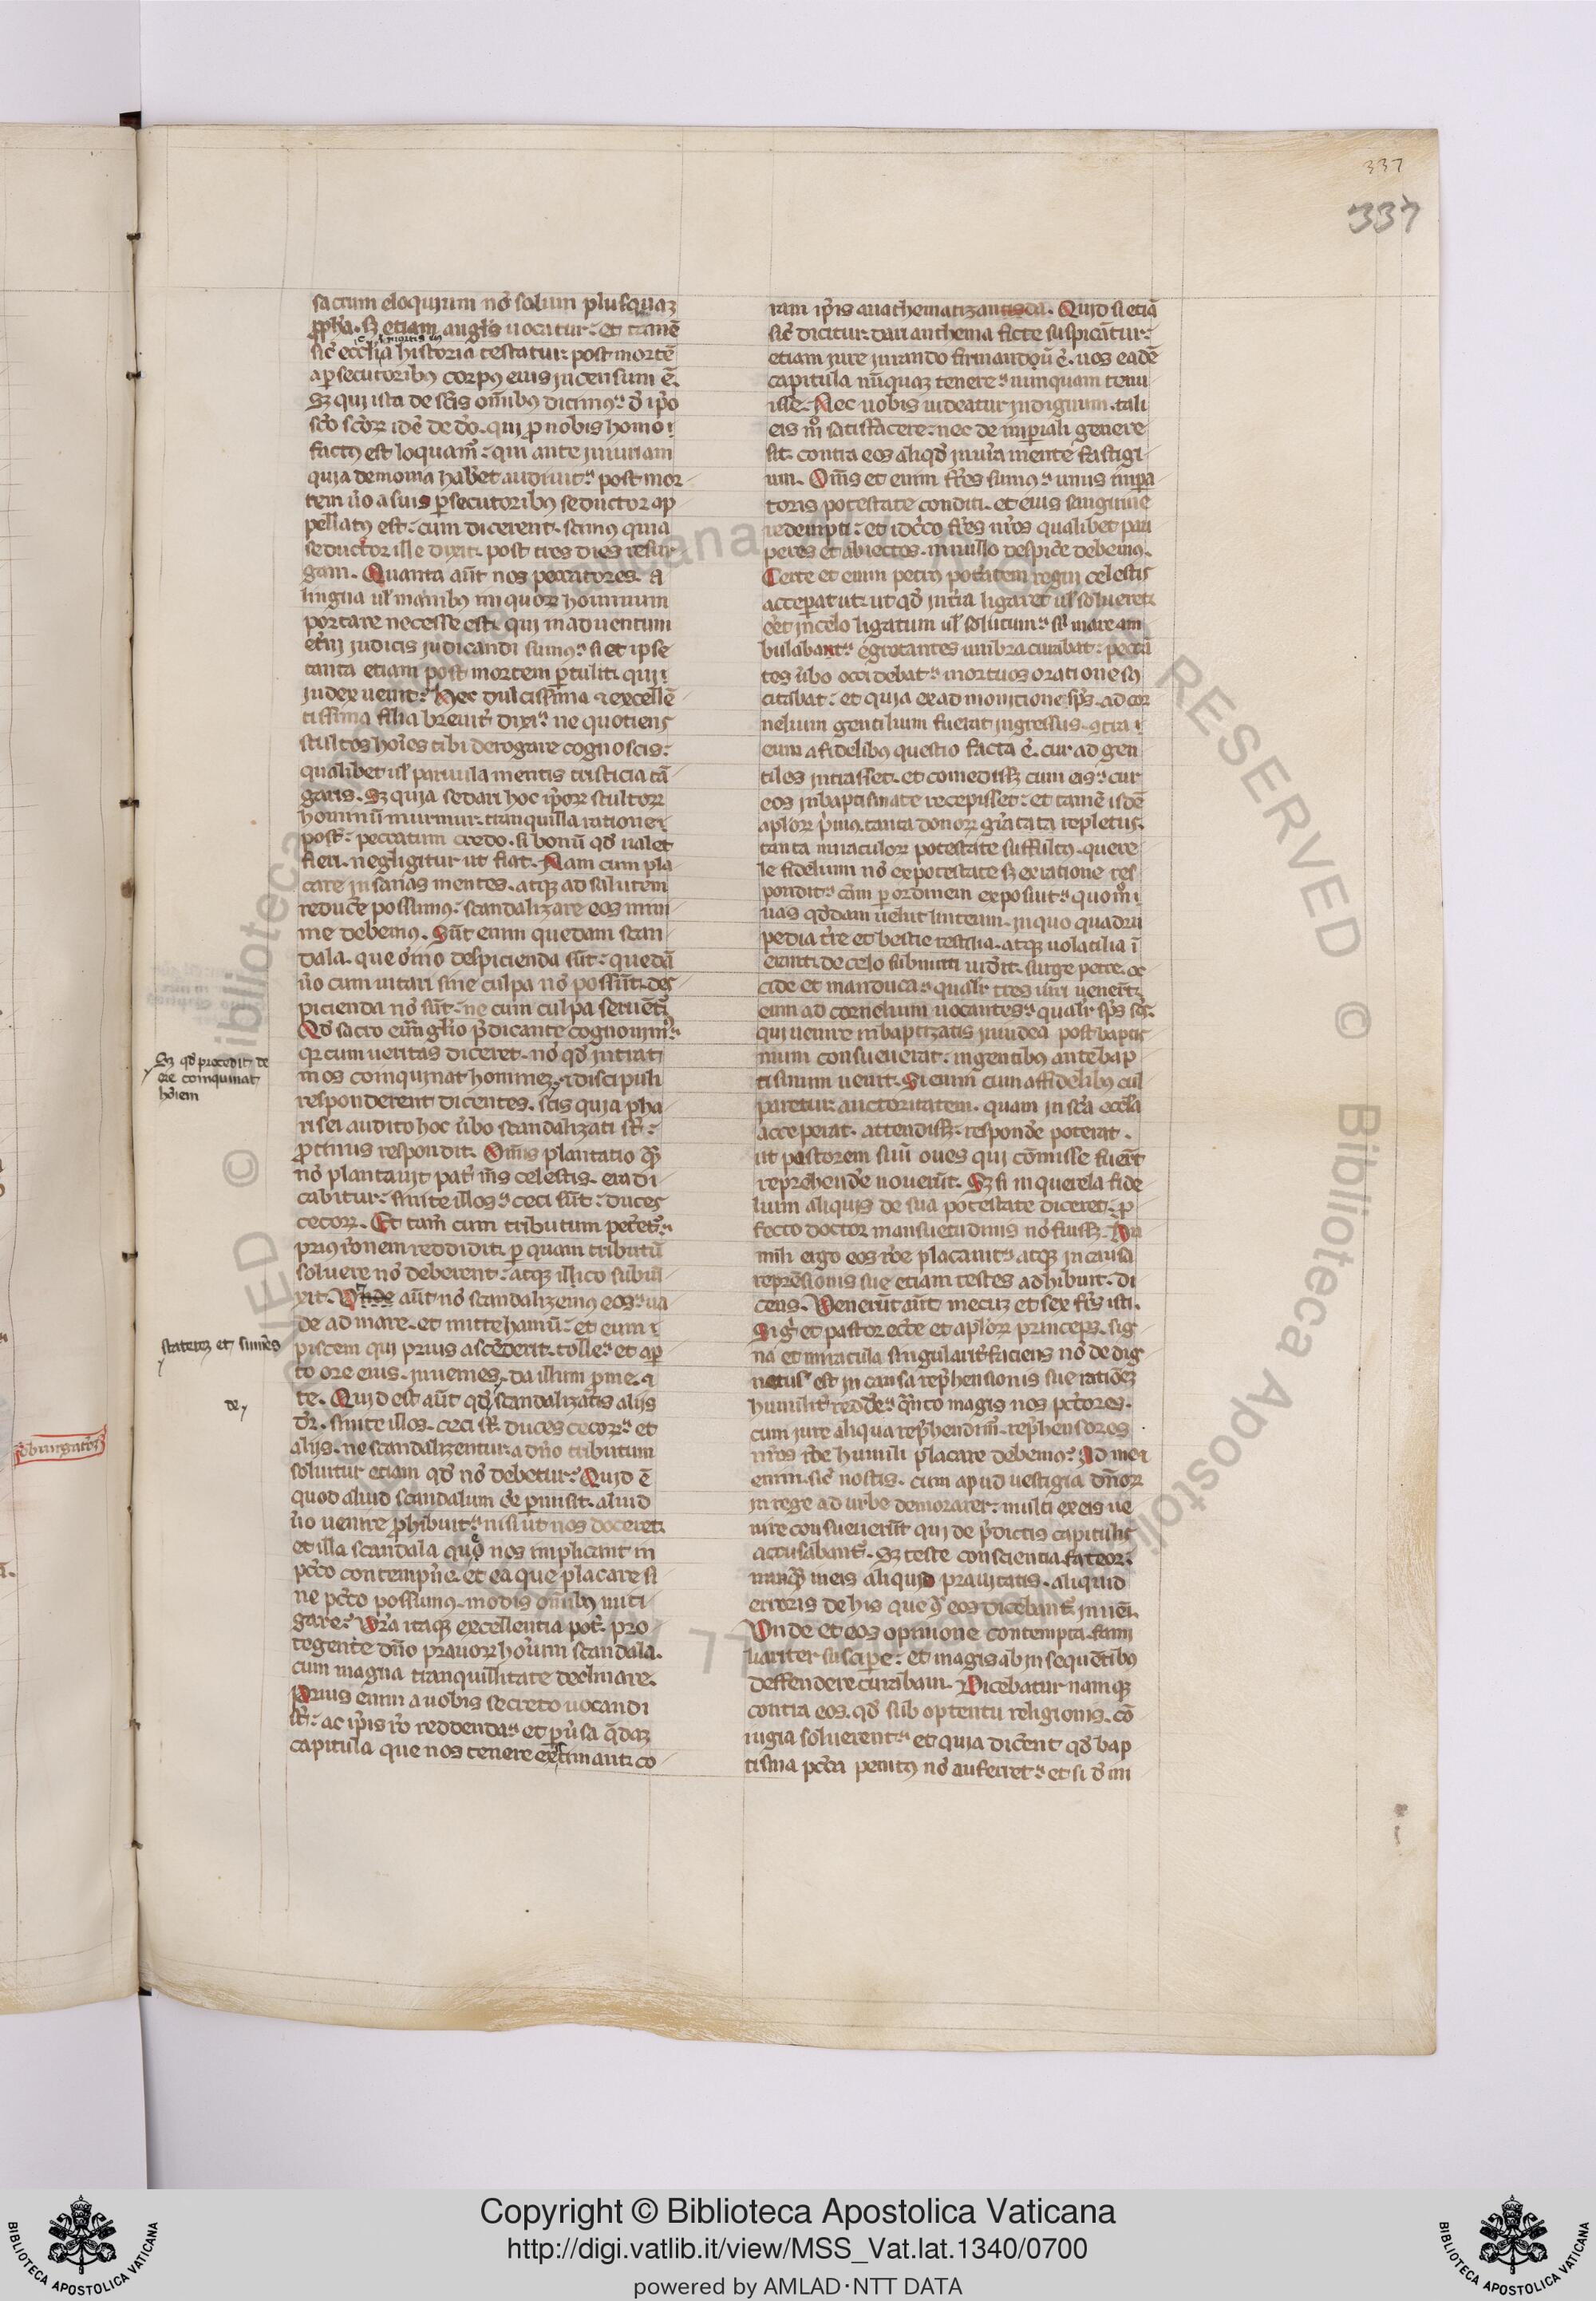 337
337
sacrum eloquium nō solum plusquaz
ꝓph̄a. sꝫ etiam angl̄s uocatur. et tamē
sic̄ eccl̄ia historia testatur post mortē
a ꝑsecutoribꝰ corpꝰ eius incensum ē.
Sꝫ qui ista de sc̄is om̄ibꝰ dicimꝰ. d̓ ip̄o
sc̄o sc̄oꝝ idē de d̓o. qui ꝓ nobis homo
factꝰ est loquam̄. qui ante iniuriam
quia demonia habet audiuit. post mor
tem ū̓o a suis ꝑsecutoribꝰ seductor ap
pellatꝰ est. cum dicerent. scimus quia
seductor ille dixit. post tres dies resur
gam. Quanta aūt nos peccatores. a
lingua ul̓ manibꝰ iniquoꝝ hominum
portare necesse est. qui in aduentum
et̓ni iudicis iudicandi sumꝰ. si et ipse
tanta etiam post mortem ꝑtulit. qui
iudex uenit. Hec dulcissima ⁊ excellē
tissima filia breuit̓ dixi. ne quotiens
stultos ho̓ies tibi derogare cognoscis.
qualibet ul̓ paruula mentis tristicia tā
garis. Sꝫ quia sedari hoc ip̄oꝝ stultoꝝ
hominū murmur. tranquilla ratione
post̓. peccatum credo. si bonū qd̓ ualet
fieri. negligitur ut fiat. Nam cum pla
care insanas mentes. atqꝫ ad salutem
reduc̓e possumꝰ. scandalizare eos mini
me debemꝰ. Sūt enim quedam scan
dala. que o̓ino despicienda sūt. quedā
ū̓o cum uitari sine culpa nō possūt. des
picienda nō sūt. ne cum culpa seruēt̓.
Qd̓ sacro eūnglīo p̄dicante cognouim̄.
qꝛ cum ueritas diceret. nō qd̓ intrat
in os coinquinat hominez. ⁊ discipuli
Sꝫ qd̓ procedit de
ore coinquinat
ho̓iem
responderent dicentes. scis quia pha
risei audito hoc ū̓bo scandalizati st̄.
ꝓtinus respondit. Om̄is plantatio qꝫ̄
nō plantauit pat̓ m̄s celestis. eradi
cabitur. sinite illos. ceci sūt. duces
cecoꝝ. Et tam̄ cum tributum pet̓et̓.
priꝰ rōnem reddidit. ꝑ quam tributū
soluere nō deberent. atqꝫ illico subiū
xit. Vnde aūt nō scandalizemꝰ eos. ua
de ad mare. et mitte hamū. et eum
piscem qui prius ascēderit. tolle. et ap̄
staterez et sum̄es
to ore eius. inuenies. da illum ꝑ me. ⁊
te. Quid est aūt qd̓ scandalizatis aliis
de
dr̄. sinite illos. ceci st̄. duces cecoꝝ. et
alijs. ne scandalizentur. a dn̄o tributum
soluitur etiam qd̓ nō debetur. Quid ē
quod aliud scandalum ēe ꝑmisit. aliud
ū̓o uenire ꝓhibuit. nisi ut nos doceret.
et illa scandala quo̓ nos implicant in
pc̄co contempn̄e. et ea que placare si
ne pc̄co possumꝰ. modis om̄ibꝰ miti
gare. Vr̄a itaqꝫ excellentia pot̓. pro
tegente dn̄o prauoꝝ ho̓ium scandala.
cum magna tranquillitate declinare.
Prius enim a uobis secreto uocandi
st̄. ac ip̄is rō reddenda. et ꝑū̓sa q̄daz
capitula que nos tenere existimant. co
ram ip̄is anathematizantisdā. Quid si etiā
sic̄ dicitur. dari anthema ficte suspicātur.
etiam iure iurando firmandoū̄ ē. uos eadē
capitula nūquaz tenere. nunquam tenu
isse. Nec uobis uideatur indignum. tali
eis mo̓ satisfacere. nec de imꝑiali genere
sit. contra eos aliqd̓ in ur̄a mente fastigi
um. Om̄s et enim fr̄es sumꝰ. unus imꝑa
toris potestate conditi. et eius sanguine
redempti. et idc̓co fr̄es nr̄os qualibet pau
peres et abiectos. in nullo despic̓e debemꝰ.
Certe et enim petrꝰ pot̄atem regni celestis
acceperat ut. ut qd̓ int̓ra ligaret ul̓ solueret.
ēet in celo ligatum ul̓ solutum. sr̄ mare am
bulabant. egrotantes umbra curabat. peccā
tos ū̓bo occidebat. mortuos oratione su
citabat. et quia ex admonicione sp̄s. ad cor
nelium gentilium fuerat ingressus. ꝯtra
eum a fidelibꝰ questio facta ē. cur ad gen
tiles intrasset. et comedissꝫ cum eis. cur
eos in baptismate recepisset. et tamē isdē
apl̓oꝝ p̄mꝰ. tanta donoꝝ gr̄a tata repletus.
tanta miraculoꝝ potestate suffultꝰ. quere
le fidelium nō ex potestate sꝫ ex ratione res
pondit. cām ꝑ ordinem exposuit. quomo̓
uas qd̓dam uelut linteum. in quo quadru
pedia tr̄e et bestie reptilia. atqꝫ uolatilia ī
erant. de celo submitti uid̓it. surge petre. oc
cide et manduca. qualr̄ tres uiri uenerūt.
eum ad cornelium uocantes. qualr̄ sp̄s sc̄s.
qui uenire in baptizatis in iudea post baptis
mum consueuerat. in gentibꝰ ante bap
tismum uenit. Si enim cum a fidelibꝰ cul
paretur auctoritatem. quam in sc̄a eccl̄a
acceperat. attendissꝫ. respond̓e poterat.
ut pastorem suū oues qui cōmisse fuerūt
repr̓hend̓e nouerūt. Sꝫ si in querela fide
lium aliquis de sua potestate diceret. ꝓ
fecto doctor mansuetudinis nō fuissꝫ. Hu
mili ergo eos rōe placauit. atqꝫ in causa
reprēsionis sue etiam testes adhibuit. di
cens. Venerūt aūt mecuz et sex fr̄s isti.
Si g̓ et pastor ecc̄e et apl̓oꝝ princeps. sig
na et miracula singularit̓ faciens nō de dig
natus est in causa repr̓hensionis sue ratiōeꝫ
humilit̓ redd̓e. q̄nto magis nos pc̄tores.
cum iure aliqua repr̓hendim̄. repr̓hensores
nr̄os rōe humili placare debemꝰ. Ad me
enim. sic̄ nostis. cum apud uestigia dn̄oꝝ
in rege ad urbe demorarer. multi ex eis ue
nire consueuerūt qui de p̄dictis capitulis
accusabant̓. Sꝫ teste conscientia. fateor.
nūqꝫ̄ in eis aliquid prauitatis. aliquid
erroris de his que ꝯ̄ eos dicebant̓ inuēi.
Vnde et eos opinione contempta. fam
iliariter suscipe. et magis ab insequētibꝰ
deffendere curabam. Dicebatur namqꝫ
contra eos. qd̓ sub optentu religionis. cō
iugia soluerent. et quia dic̓ent qd̓ bap
tisma pc̄ca penitꝰ nō auferret. et si d̓ ini
Copyright © Biblioteca Apostolica Vaticana
http://digi.vatlib.it/view/MSS_Vat.lat.1340/0700
powered by AMLAD·NTT DATA
BIBLIOTECA APOSTOLICA VATICANA
BIBLIOTECA APOSTOLICA VATICANA